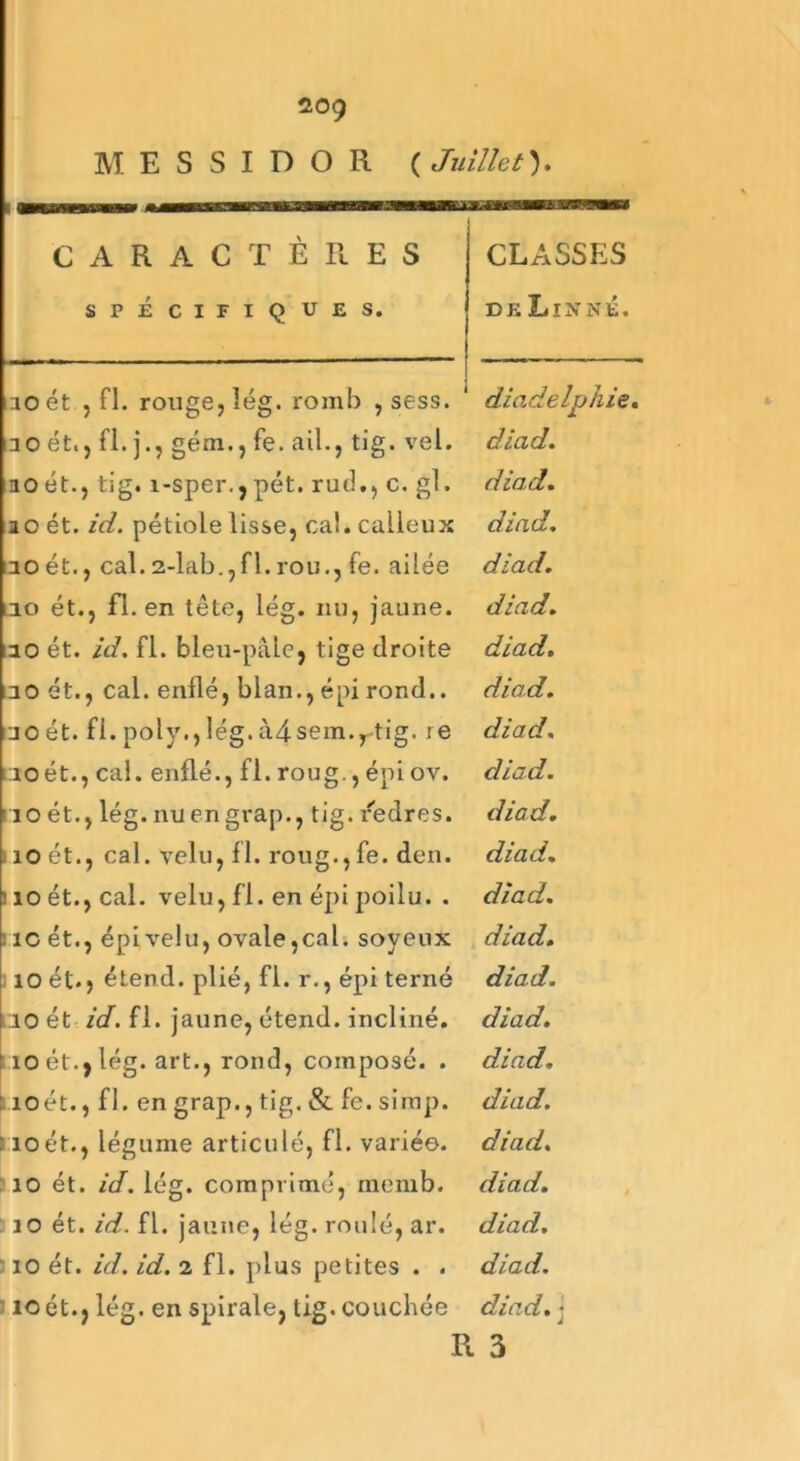 209
MESSIDOR (Juillet).
CARACTÈRES SPÉCIFIQUES. CLASSES DE LINNÉ.
10 ét , fl. rouge, lég. romb , sess. diadelphie.
10 ét., fl. j., gém., fe. ail., tig. vel. diad.
10 ét., tig. 1-sper., pét. rud., c. gl. diad.
10 ét. id. pétiole lisse, cal. calleux diad.
10 ét., cal. 2-lab., fl. rou., fe. ailée diad.
10 ét., fl. en tête, lég. nu, jaune. diad.
10 ét. id. fl. bleu-pâle, tige droite diad.
10 ét., cal. enflé, blan., épi rond.. diad.
10 ét. fl. poly., lég. à 4 sem., tig. re diad.
10 ét., cal. enflé., fl. roug., épi ov. diad.
10 ét., lég. nu en grap., tig. redres. diad.
10 ét., cal. velu, fl. roug., fe. den. diad.
10 ét., cal. velu, fl. en épi poilu. . diad.
10 ét., épi velu, ovale, cal. soyeux diad.
10 ét., étend. plié, fl. r., épi terné diad.
10 ét id. fl. jaune, étend. incliné. diad.
10 ét., lég. art., rond, composé. . diad.
10 ét., fl. en grap., tig. & fe. simp. diad.
10 ét., légume articulé, fl. variée. diad.
10 ét. id. lég. comprimé, memb. diad.
10 ét. id. fl. jaune, lég. roulé, ar. diad.
10 ét. id. id. 2 fl. plus petites . . diad.
10 ét., lég. en spirale, tig. couchée diad.
R 3